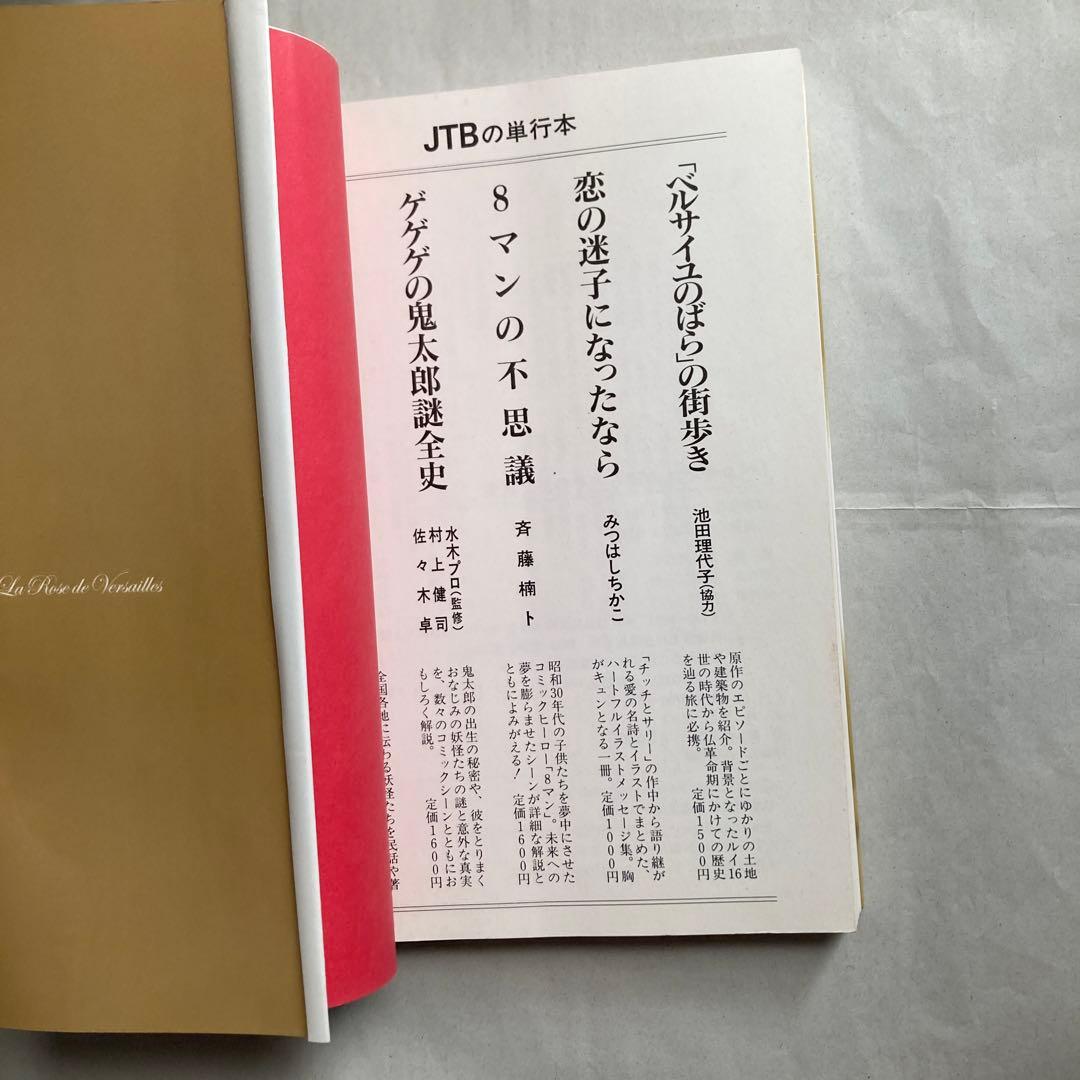 JTBの単行本
「ベルサイユのばら」の街歩き
池田理代子(協力)
原作のエピソードごとにゆかりの土地
や建築物を紹介。背景となったルイ16
世の時代から仏革命期にかけての歴史
を辿る旅に必携。 定価1500円
恋の迷子になったなら
みつはしちかこ
「チッチとサリー」の作中から語り継が
れる愛の名詩とイラストでまとめた、
ハートフルイラストメッセージ集。胸
がキュンとなる一冊。 定価1000円
8マンの不思議
斉藤楠ト
昭和30年代の子供たちを夢中にさせた
コミックヒーロー「8マン」。未来への
夢を膨らませたシーンが詳細な解説と
ともによみがえる! 定価1600円
ゲゲゲの鬼太郎謎全史
水木プロ(監修)
村上健司
佐々木卓
鬼太郎の出生の秘密や、彼をとりまく
おなじみの妖怪たちの謎と意外な真実
を、数々のコミックシーンとともにお
もしろく解説。 定価1600円
全国各地に伝わる妖怪たちを民話や著
La Rose de Versailles